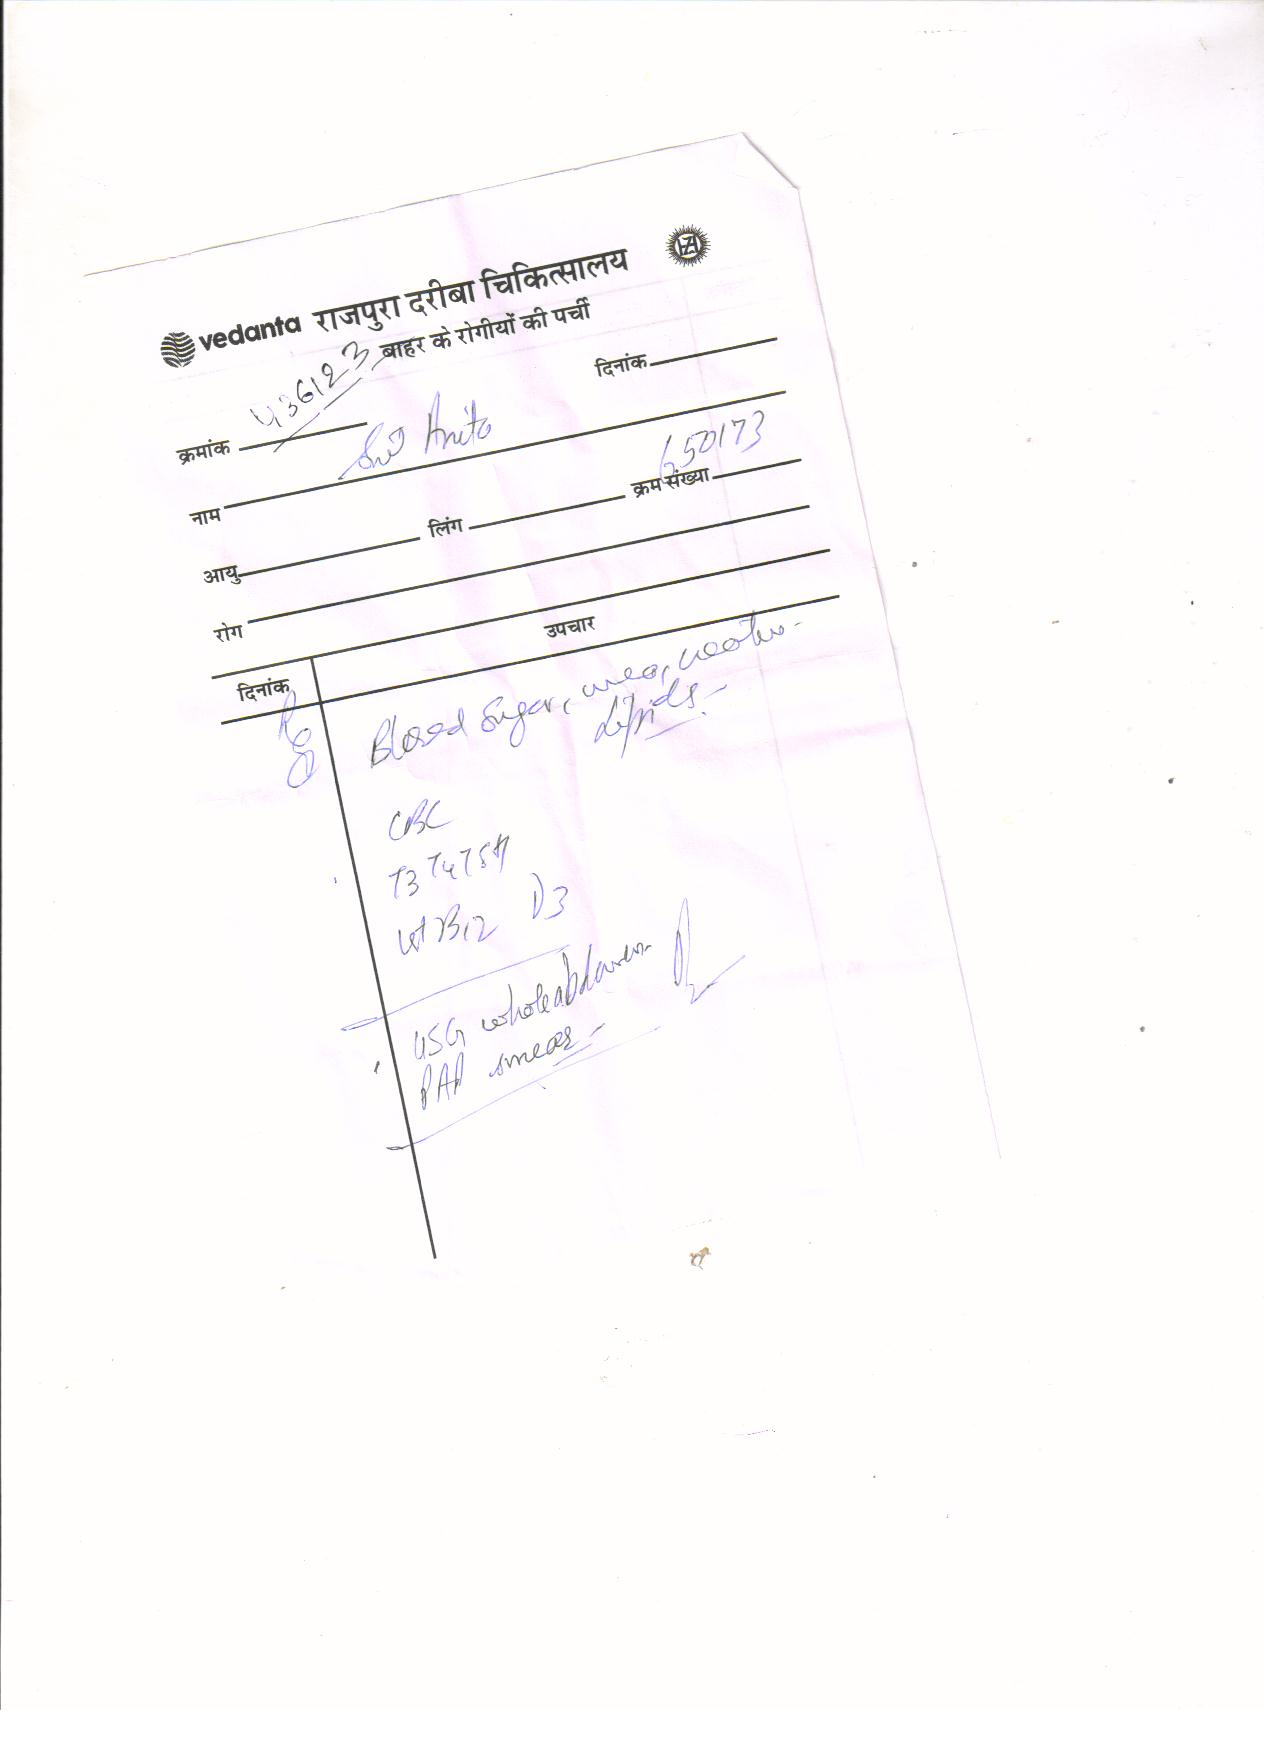 vedanta राजपुरा दरीबा चिकित्सालय
बाहर के रोगीयों की पर्ची
क्रमांक 436123 दिनांक
नाम Anita
आयु लिंग क्रम संख्या 650173
रोग
दिनांक उपचार
Blood Sugar, urea, creatin-
Lipids.-
CBC
T3 T4 TSH
vit B12 D3
USG whole abdomen-
PAP smear-